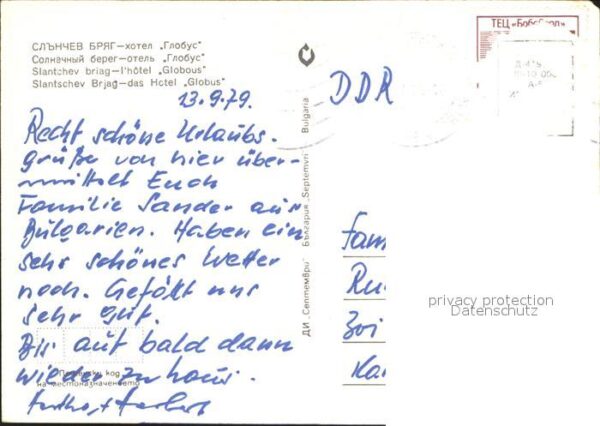 СЛЪНЧЕВ БРЯГ—хотел „Глобус"
Солначный берег—отель „Глобус"
Slantchev briag—l'hôtel „Globous"
Slantschev Brjag—das Hotel „Globus"
13.9.79.
Recht schöne Urlaubs-
grüße von hier über-
mittelt Euch
Familie Sander aus
Bulgarien. Haben ein
sehr schönes Wetter
noch. Gefällt uns
sehr gut.
Bis auf bald dann
wieder zu haus.
код
на местоназначението
ДИ „Септември" България „Septemvri" Bulgaria
DDR
ТЕЦ
Fam
privacy protection
Datenschutz